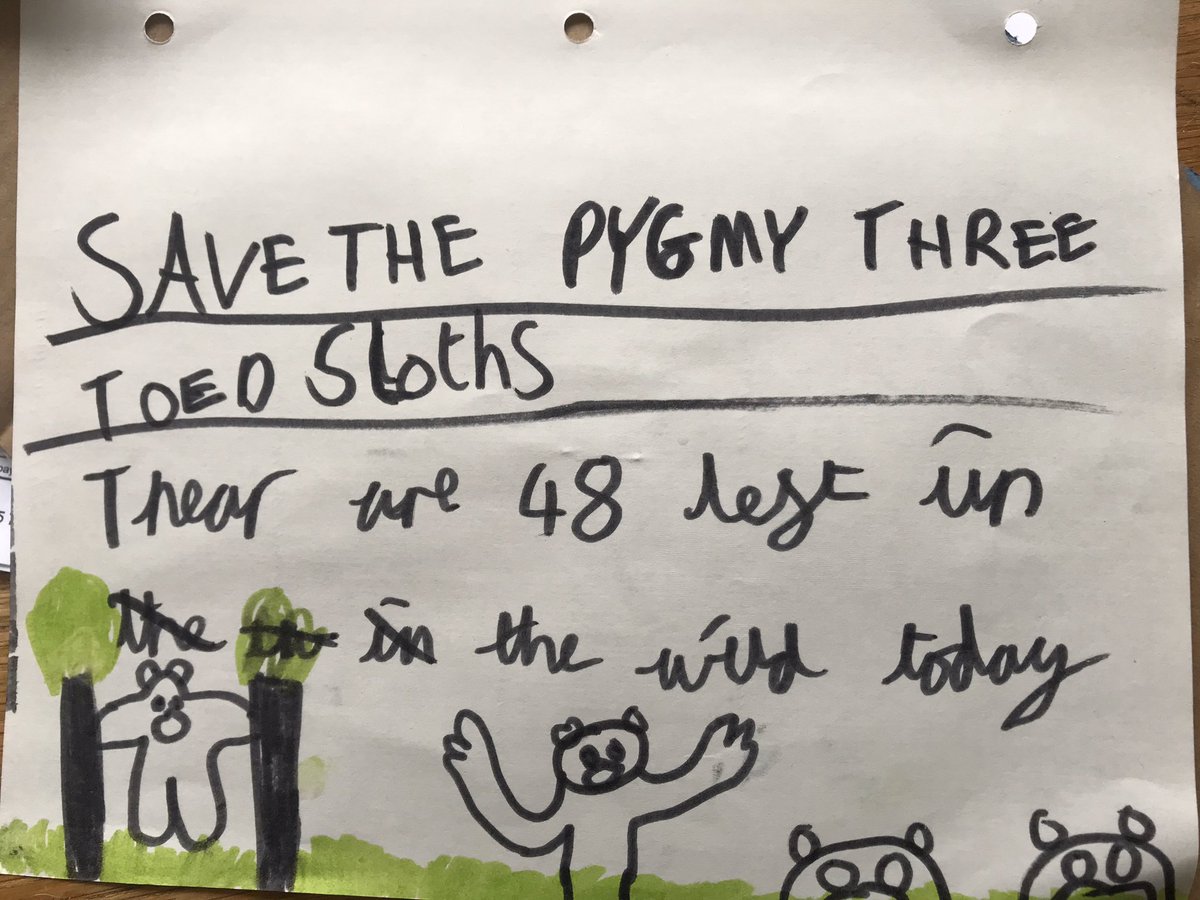 SAVE THE PYGMY THREE
TOED SlothS
Thear are 48 left in
the in in the wild today